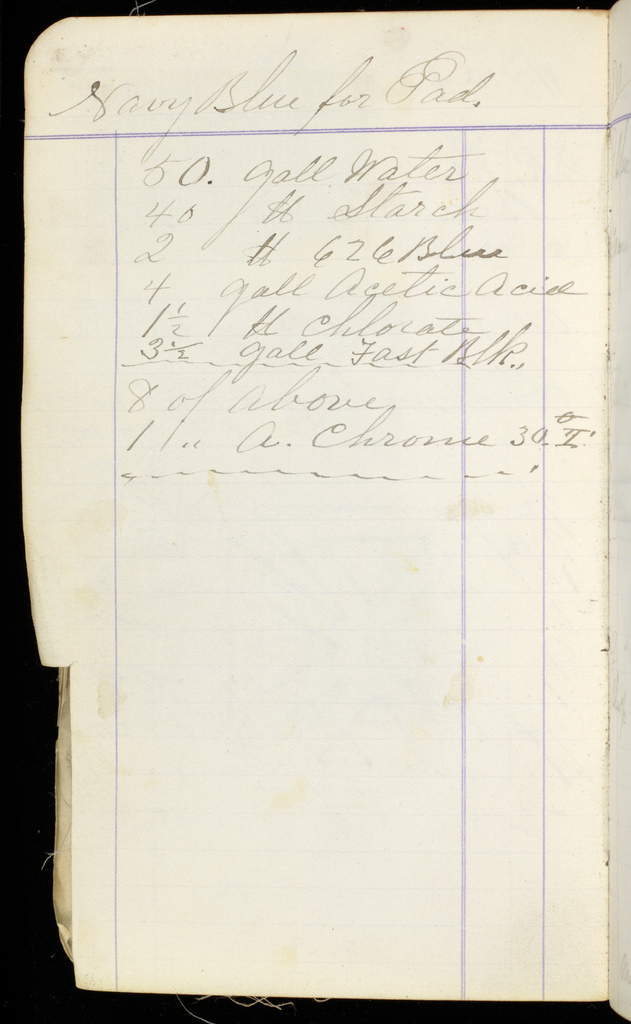 Navy Blue for Pad.
50. gall Water
40 ℔ Starch
2 ℔ 626 Blue
4 gall Acetic Acid
1 1/2 ℔ Chlorate
3 1/2 gall Fast Blk.
8 of above
1 " A. Chrome 30.° T.